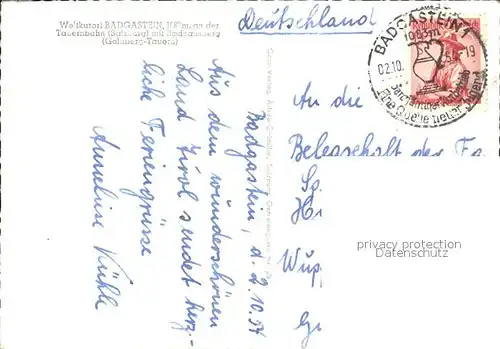 Weltkurort BADGASTEIN, 1083m, an der
Tauernbahn (Salzburg) mit Badbruckerg
(Gohnerg-Tauern)
Deutschland
BADGASTEIN 1
1083m
02.10. -19
Eine Quelle neuer Jugend
Badgastein, d. 2.10.54
Aus dem wunderschönen
Land Tirol sendet herz-
liche Feriengrüsse
Annelise Kühle
An die
Belegschaft der Fa.
Sp.
Wup
privacy protection
Datenschutz